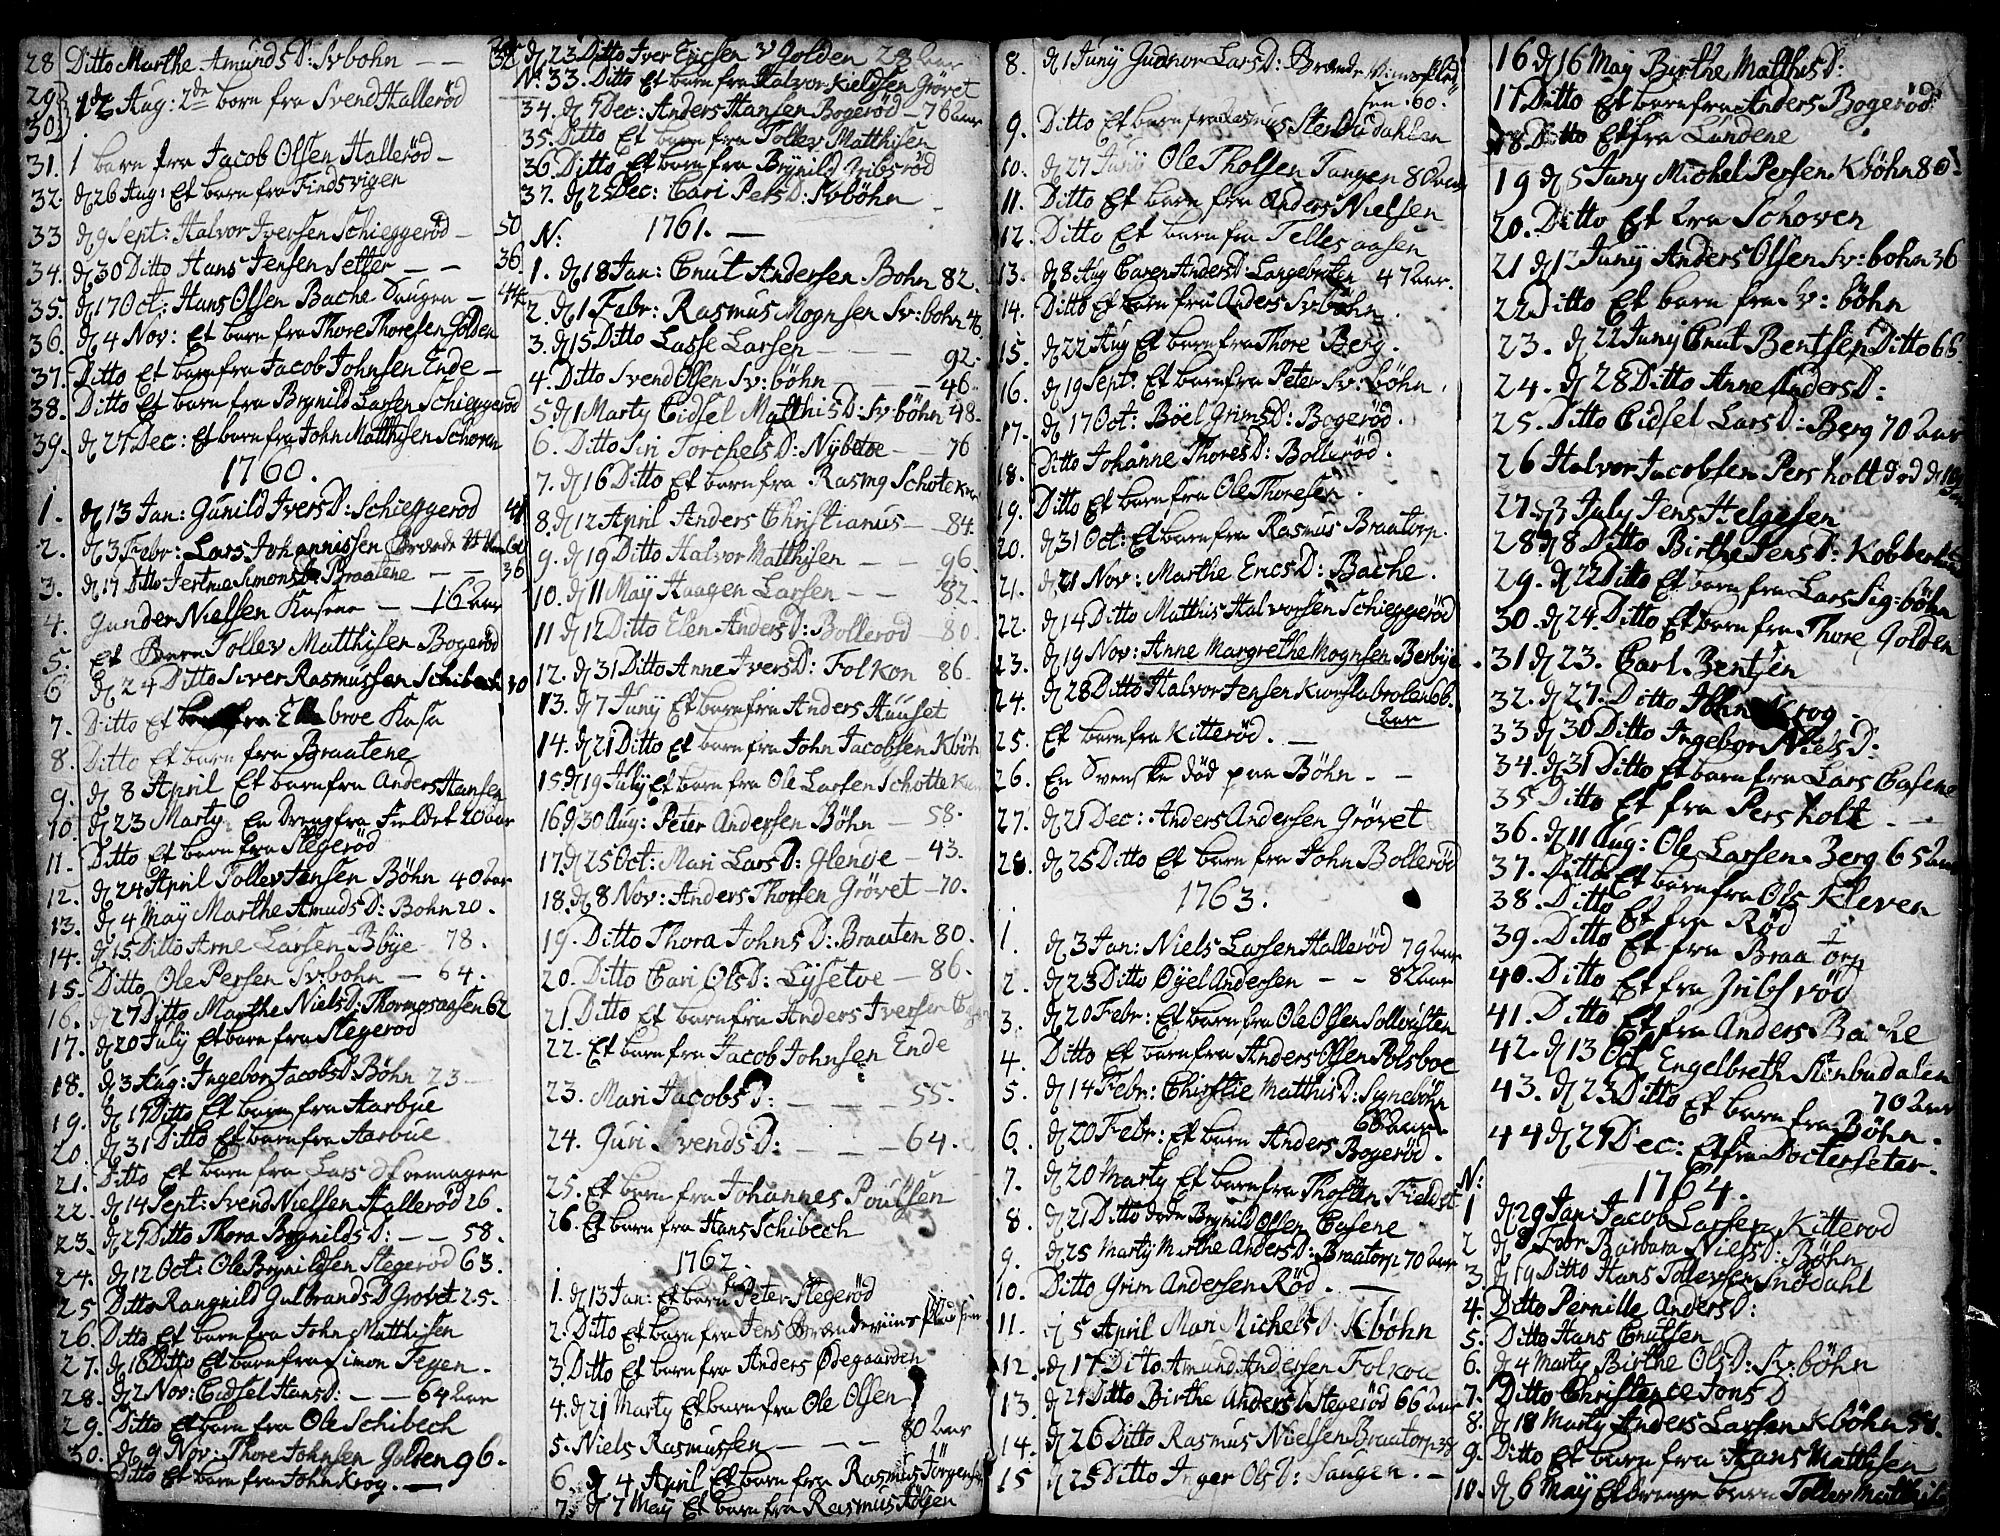 28 Ditto Marthe Amunds D: Svbohn — —
29 } d 12 Aug: 2de born fra Svend Hallerød
30 }
31. 1 barn fra Jacob Olsen Hallerød —
32. d 26 Aug: Et barn fra Findsvigen
33 d 9 Sept: Halvor Iversen Schieggerød — 50
34. d 30 Ditto Hans Jensen Setter — — 36
35. d 17 Oct: Hans Olsen Bache Saugen — 44
36. d 4 Nov: Et barn fra Thore Thoresen Golden
37. Ditto Et barn fra Jacob Johnsen Ende —
38. Ditto Et barn fra Brynild Larsen Schieggerød
39. d 27 Dec: Et barn fra John Matthisen Schoven
1760.
1. d 13 Jan: Gunild Ivers D: Schieggerød 41
2. d 3 Febr: Lars Johannissen
3. d 17 Ditto Simons D Braatene — — 36
4. Gunder Nielsen Kasene — 16 aar
5. Et Barn Tollev Matthisen Bogerød
6 d 24 Ditto Siver Rasmussen Schibech 30
7. Ditto Et barn fra Kasa
8. Ditto Et barn fra Braatene
9. d 8 April Et barn fra Anders Hansen
10. d 23 Marty En Dreng fra Fieldet 20 aar
11. Ditto Et barn fra Stegerød
12. d 24 April Tollev Jensen Bøhn 40 aar
13. d 4 May Marthe Amuds D: Bohn 20.
14. d 15 Ditto Arne Larsen Bøye 78.
15. Ditto Ole Persen Svbohn — 64.
16. d 27 Ditto Marthe Niels D: Thormosaasen 62
17. d 20 July Et barn fra Stegerød
18. d 3 Aug: Ingebor Jacobs D Bøhn 23 —
19. d 17 Ditto Et barn fra Aarbue
20. d 31 Ditto Et barn fra Aarbue
21. Ditto Et barn fra Lars Skoemager
22. d 14 Sept: Svend Nielsen Hallerød 26.
23. d 27 Ditto Thora Brynilds D: — — 58.
24. d 12 Oct: Ole Brynildsen Stegerød 63.
25 Ditto Rangnild Gulbrands D Grøvet 25.
26. Ditto Et barn fra John Matthisen
27. d 16 Ditto Et barn fra Simon Tegen.
28. d 2 Nov: Cidsel Hans D: — — 64 aar
29. Ditto Et barn fra Ole Schibech
30. d 9 Nov: Thore Johnsen Golden 96.
Ditto Et barn fra John Krog. —
32 d 23 Ditto Iver Ericsen v Golden 28 aar
N: 33. Ditto Et barn fra Halvor Kieldsen Grövet
34. d 7 Dec: Anders Hansen Bogerød — 76 aar
35. Ditto Et barn fra Tollev Matthisen
36. Ditto Et barn fra Brynild Gribsrød
37. d 25 Dec: Cari Pers D: Svbøhn —
N: 1761. —
1. d 18 Jan: Cnut Andersen Bohn 82.
2. d 1 Febr: Rasmus Mognsen Sv: bohn 46
3. d 15 Ditto Lasse Larsen — — — 92.
4. Ditto Svend Olsen Sv: bøhn — — 46.
5. d 1 Marty Cidsel Matthis D: Sv: bøhn 48.
6. Ditto Siri Torchels D: Nybroe — 76
7. d 16 Ditto Et barn fra Rasmg Schote
8. d 12 April Anders Christianus — 84.
9. d 19 Ditto Halvor Matthisen — — 96.
10. d 11 May Haagen Larsen — — 82.
11 d 12 Ditto Elen Anders D: Bollerød 80.
12. d 31 Ditto Anne Ivers D: Folkon 86.
13. d 7 Juny Et barn fra Anders Huuset
14. d 21 Ditto Et barn fra John Jacobsen Kbøh
15 d 19 July Et barn fra Ole Larsen Schotte
16 d 30 Aug: Peter Andersen Bøhn — 58.
17. d 25 Oct: Mari Lars D: Glende — 43.
18. d 8 Nov: Anders Thorsen Grövet — 70.
19. Ditto Thora Johns D: Braaten 80.
20. Ditto Cari Ols D: Lysetoe — 86.
21. Ditto Et barn fra Anders Iversen
22. Et barn fra Jacob Johnsen Ende
23. Mari Jacobs D: — — — 55.
24. Guri Svends D: — — — 64.
25. Et barn fra Johannes Poulsen
26. Et barn fra Hans Schibech
1762.
1. d 13 Jan: Et barn fra Peter Stegerød
2. Ditto Et barn fra Jens Brændeviins pladsen
3. Ditto Et barn fra Anders Ødegaarden
4. d 21 Marty Et barn fra Ole Olsen
5. Niels Rasmussen — — — 80 aar
6. d 4 April Et barn fra Rasmus Jörgensen
7. d 7 May Et barn fra Rasmus
8. d 1 Juny Gudnor Lars D: Brænde Viins Pladsen . 60.
9. Ditto Et barn fra Rasmus Stenbudahlen
10. d 27 Juny Ole Tholsen Tangen 80 aar
11. Ditto Et barn fra Anders Nielsen
12. Ditto Et barn fra Tellesaasen
13. d 8 Aug Caren Anders D: Langebraten 47 aar.
14. Ditto Et barn fra Anders Svbøhn.
15. d 22 Aug Et barn fra Thore Berg.
16. d 19 Sept: Et barn fra Peter Sv: bøhn.
17. d 17 Oct: Böel Grims D: Bogerød.
18. Ditto Johanne Thores D: Bollerød.
19. Ditto Et barn fra Ole Thoresen.
20. d 31 Oct: Et barn fra Rasmus Braatorp.
21. d 21 Nov: Marthe Erics D: Bache.
22. d 14 Ditto Matthis Halvorsen Schieggerød
23. d 19 Nov: Anne Margrethe Mognsen Berbye.
24. d 28 Ditto Halvor Jensen 66. aar
25. Et barn fra Kitterød. —
26. En Svenske død paa Bøhn. —
27. d 21 Dec: Anders Andersen Grövet
28. d 25 Ditto Et barn fra John Bollerød
1763.
1. d 3 Jan: Niels Larsen Hallerød 79 aar
2. d 23 Ditto Øyel Andersen — — 82 aar
3. d 20 Febr: Et barn fra Ole Olsen Sollviisten
4. Ditto Et barn fra Anders Olsen Polsboe
5. d 14 Febr: Chirstie Matthis D: Signebøhn 68 aar.
6. d 20 Febr: Et barn Anders Bogerød.
7. d 20 Marty Et barn fra Thosten Fieldet
8. d 21 Ditto døde Brynild Olsen Casene
9. d 25 Marty Marthe Anders D: Braatorp 70 aar
10. Ditto Grim Andersen Rød. —
11. d 5 April Mari Michels D: Kbøhn
12. d 17 Ditto Amund Andersen Folkoa
13. d 24 Ditto Birthe Anders D Stegerød 66 aar
14. d 26 Ditto Rasmus Nielsen Braatorp 38
15 d 25 Ditto Inger Ols D: Saugen. —
16 d 16 May Birthe Matthis D:
17 Ditto Et barn fra Anders Bogerød.
18. Ditto Et fra Lundene
19 d 5 Juny Michel Persen Kbøhn 80.
20. Ditto Et fra Schoven
21 d 12 Juny Anders Olsen Sv: bohn 36
22 Ditto Et barn fra Sv: bøhn
23. d 22 Juny Cnut Bentsen Ditto 66
24. d 28 Ditto Anne Anders D:
25. Ditto Cidsel Lars D: Berg 70 aar
26 Halvor Jacobsen Persholt død d 10
27. d 3 July Jens Helgesen
28 d 8 Ditto Birthe Jens D: Kobber
29. d 22 Ditto Et barn fra Lars Sig=bøhn
30. d 24. Ditto Et barn fra Thore Golden
31 d 23. Carl Bentsen
32. d 27. Ditto John Krog —
33 d 30 Ditto Ingebor Niels D:
34. d 31 Ditto Et barn fra Lars Casene
35 Ditto Et fra Persholt —
36. d 11 Aug: Ole Larsen Berg 65 aar
37. Ditto Et barn fra Ole Kleven
38. Ditto Et fra Rød
39. Ditto Et fra Braatorp
40. Ditto Et fra Gribsrød
41. Ditto Et fra Anders Bache
42. d 13 Oct Engelbreth Stenbudalen 70 aar
43. d 23 Ditto Et barn fra Bøhn.
44 d 27 Dec: Et fra Docterseter.
N: 1764.
1 d 29 Jan Jacob Larsen Kitterød
2 d 8 Febr Barbara Niels D: Bøhn
3. d 19 Ditto Hans Tollevsen Snødahl
4. Ditto Pernille Anders D:
5. Ditto Hans Cnutsen
6. d 4 Marty Birthe Ols D: Sv: bøhn
7. Ditto Christence Jons D
8. d 18 Marty Anders Larsen Kbøhn 58.
9. Ditto Et barn fra Hans Matthisen
10. d 6 May Et Drenge barn Tollev Matthis